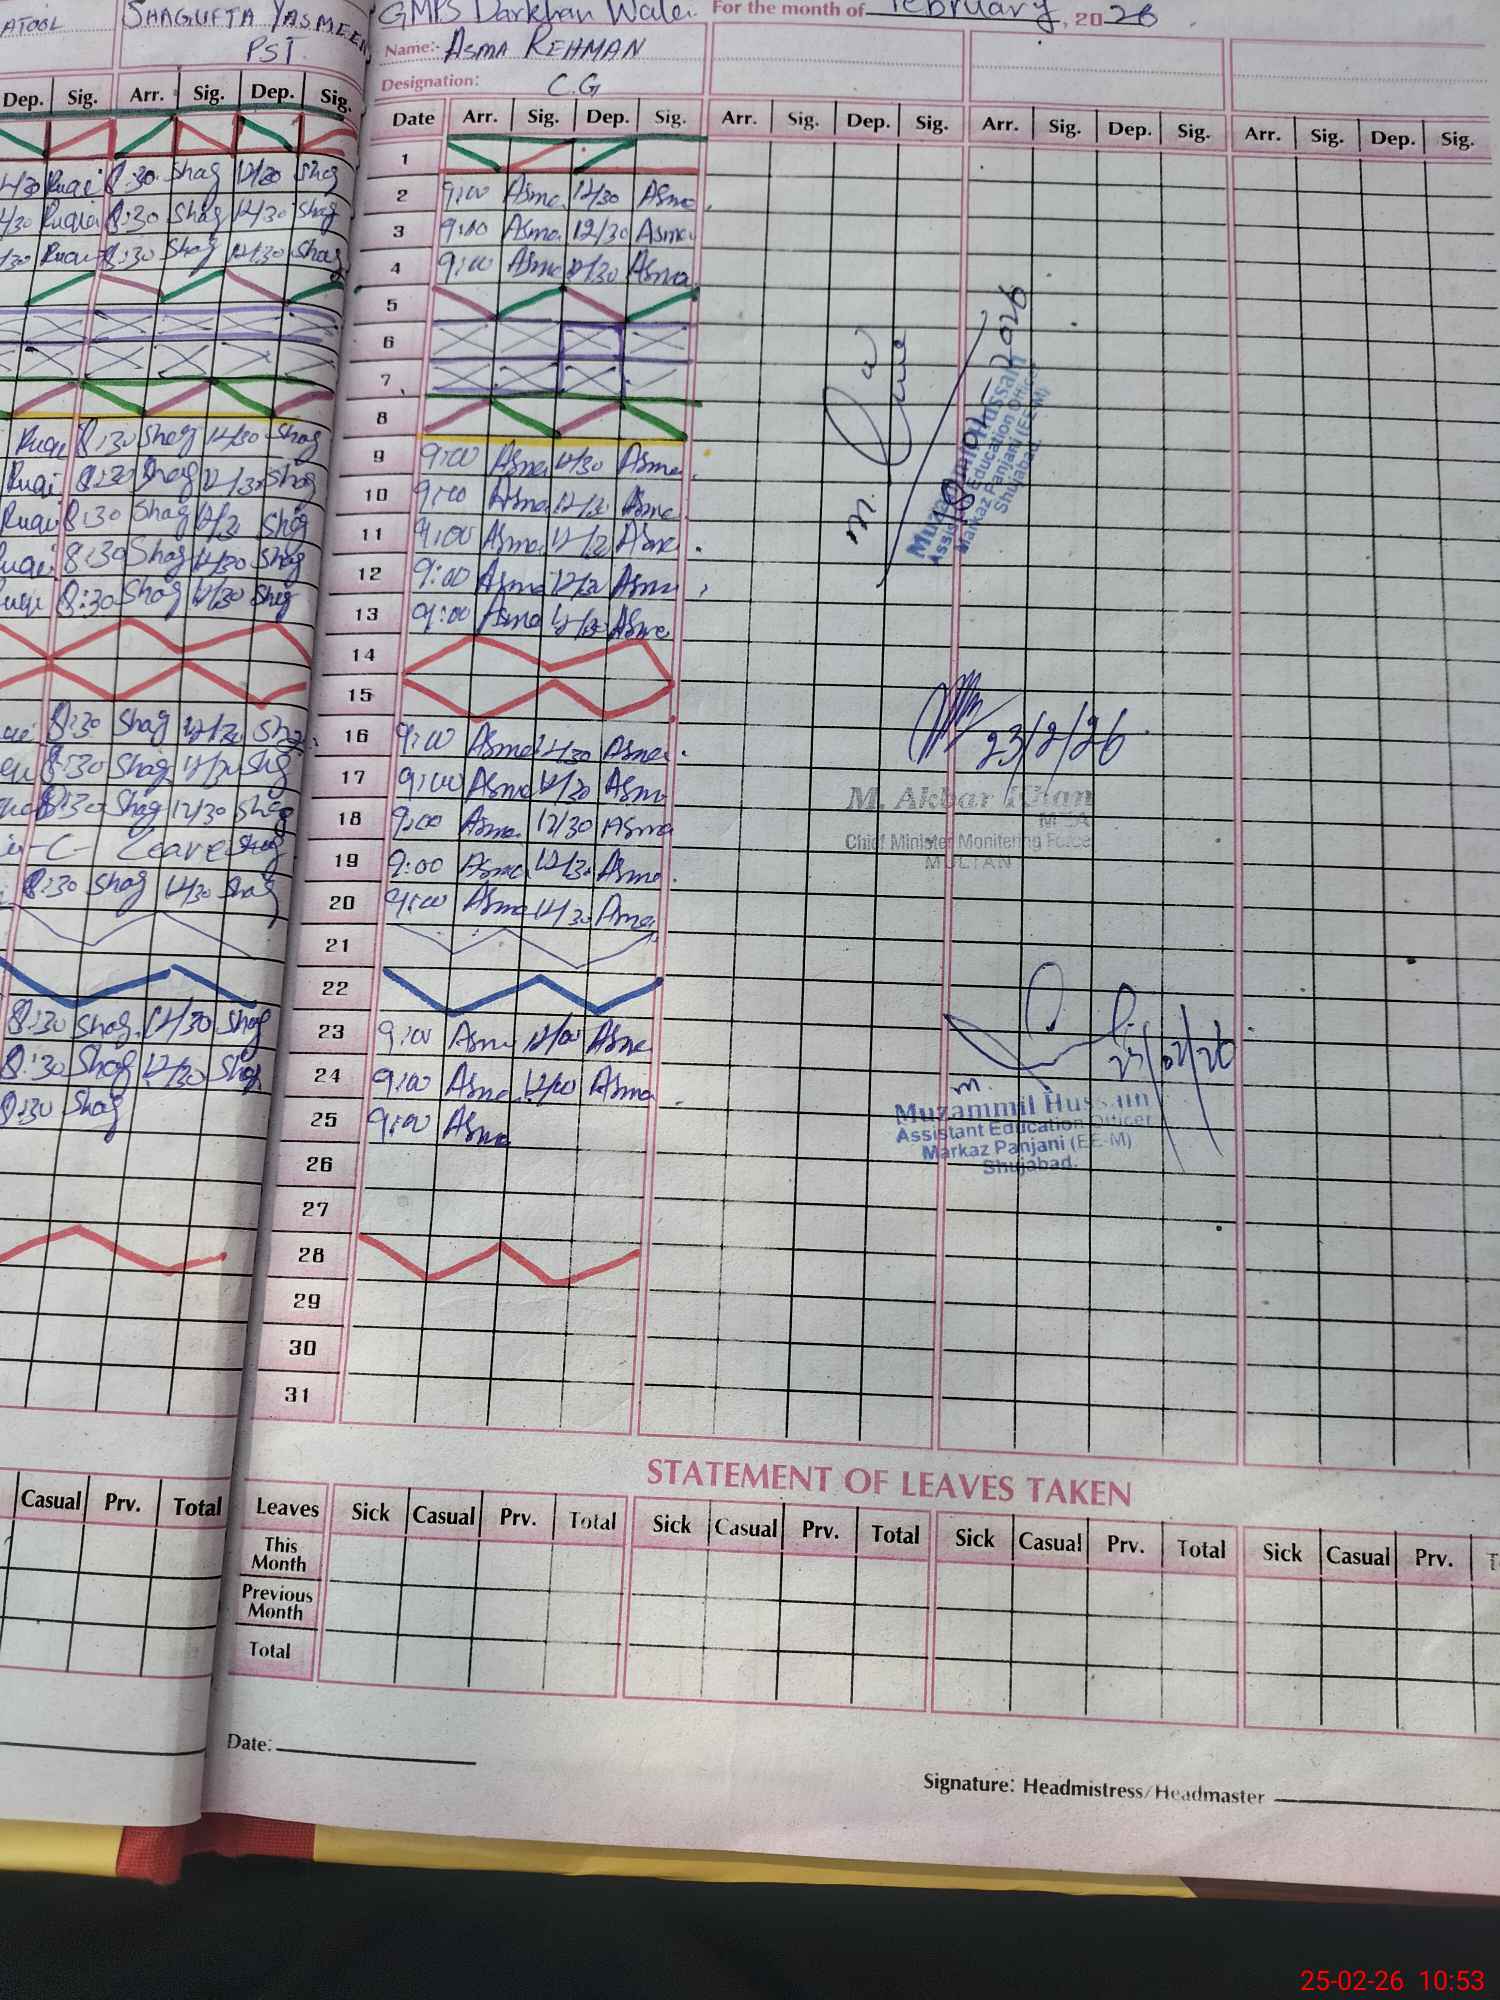 ATOOL SHAGUFTA YASMEEN
PST.
Dep. Sig. Arr. Sig. Dep. Sig.
8:30 Shag 12/30 Shag
8:30 Shag 12/30 Shag
8:30 Shag 12/30 Shag
8:30 Shag 12/30 Shag
8:30 Shag 12/30 Shag
8:30 Shag Shag
8:30 Shag 12/30 Shag
8:30 Shag 12/30 Shag
8:30 Shag 12/30 Shag
8:30 Shag Shag
8:30 Shag 12/30 Shag
-C- Leave Shag
8:30 Shag 12/30 Shag
8:30 Shag. 12/30 Shag
8:30 Shag 12/30 Shag
8:30 Shag
Casual Prv. Total
GMPS Darkhan Wala For the month of February, 2026
Name:- ASMA REHMAN
Designation: C.G
Date Arr. Sig. Dep. Sig. Arr. Sig. Dep. Sig. Arr. Sig. Dep. Sig. Arr. Sig. Dep. Sig.
1
2 9:00 Asma 12/30 Asma
3 9:00 Asma 12/30 Asma
4 9:00 Asma 12/30 Asma
5
6
7
8
9 9:00 Asma 12/30 Asma
10 9:00 Asma 12/30 Asma
11 9:00 Asma Asma
12 9:00 Asma 12/30 Asma
13 9:00 Asma 12/30 Asma
14
15
16 9:00 Asma 12/30 Asma
17 9:00 Asma 12/30 Asma
18 9:00 Asma 12/30 Asma
19 9:00 Asma 12/30 Asma
20 9:00 Asma 12/30 Asma
21
22
23 9:00 Asma 12/00 Asma
24 9:00 Asma 12/00 Asma
25 9:00 Asma
26
27
28
29
30
31
Muzammil Hussain
Assistant Education Officer
Markaz Panjani (EE-M)
Shujabad.
23/2/26
M. Akbar Khan
MEA
Chief Minister Monitering Force
MULTAN
Muzammil Hussain
Assistant Education Officer
Markaz Panjani (EE-M)
Shujabad.
STATEMENT OF LEAVES TAKEN
Leaves Sick Casual Prv. Total Sick Casual Prv. Total Sick Casual Prv. Total Sick Casual Prv.
This Month
Previous Month
Total
Date:
Signature: Headmistress/Headmaster
25-02-26 10:53